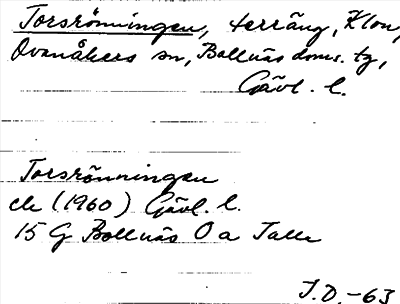 Torsrönningen, terräng, Klon,
Ovanåkers sn, Bollnäs doms. tg,
Gävl. l.
Torsrönningen
ek (1960) Gävl. l.
15 G Bollnäs O a Talle
I.D.-63